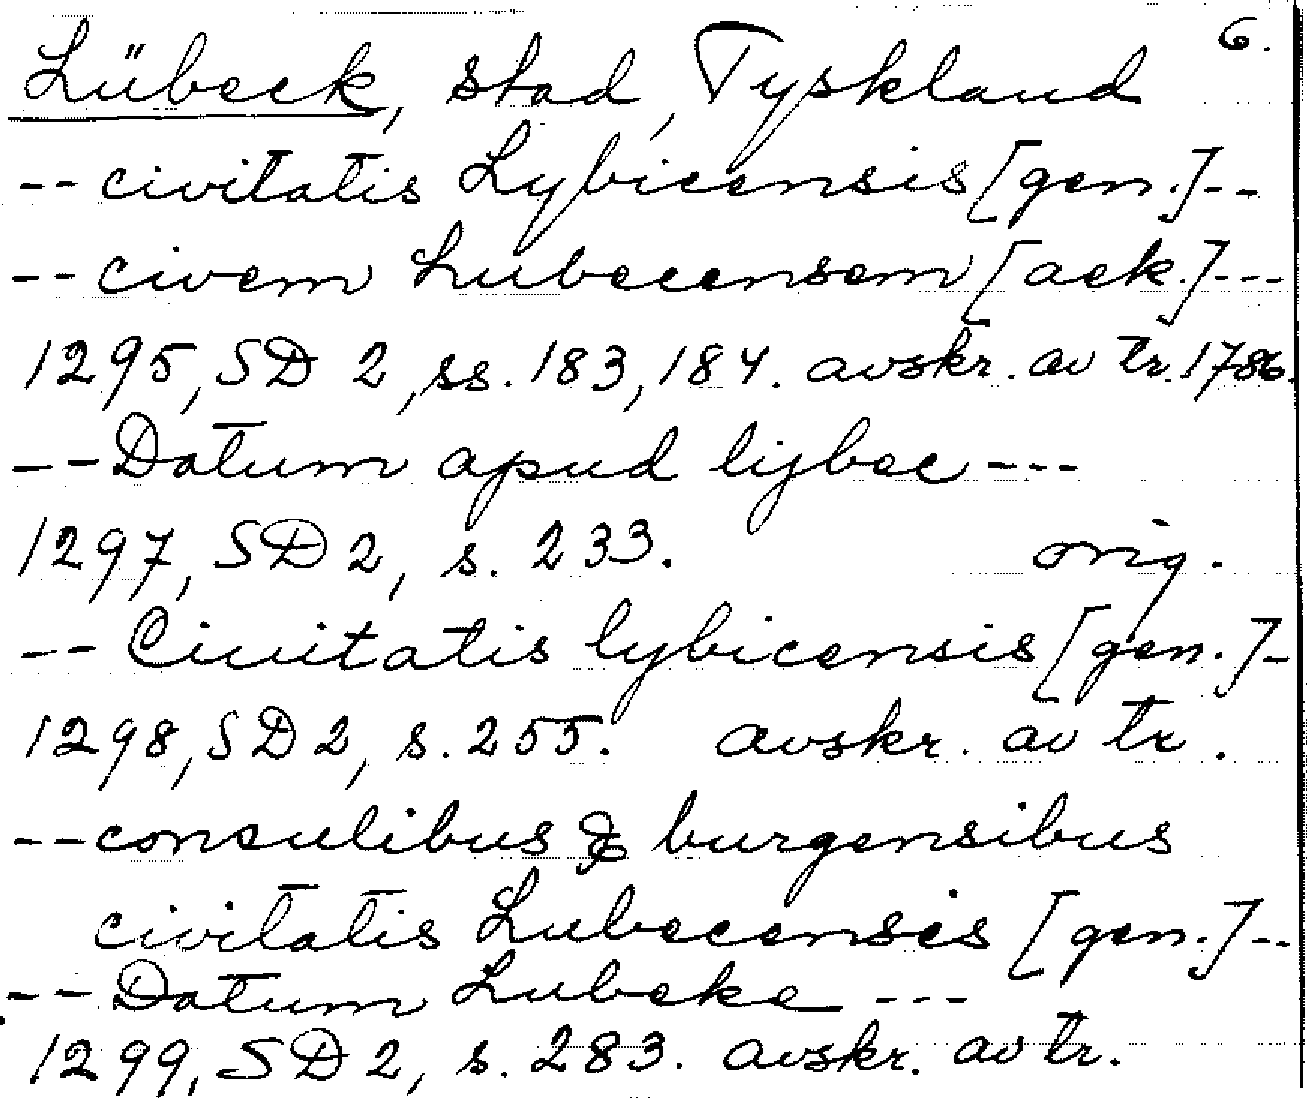 6.
Lübeck, stad, Tyskland
-- civitatis Lybicensis [gen.]--
-- civem Lubecensem [ack.]---
1295, SD 2, ss. 183, 184. avskr. av tr. 1786.
-- Datum apud lijbec ---
1297, SD 2, s. 233. orig.
-- Ciuitatis lybicensis [gen.]-
1298, SD 2, s. 255. avskr. av tr.
-- consulibus & burgensibus
civitatis Lubecensis [gen.]--
-- Datum Lubeke ---
1299, SD 2, s. 283. avskr. av tr.